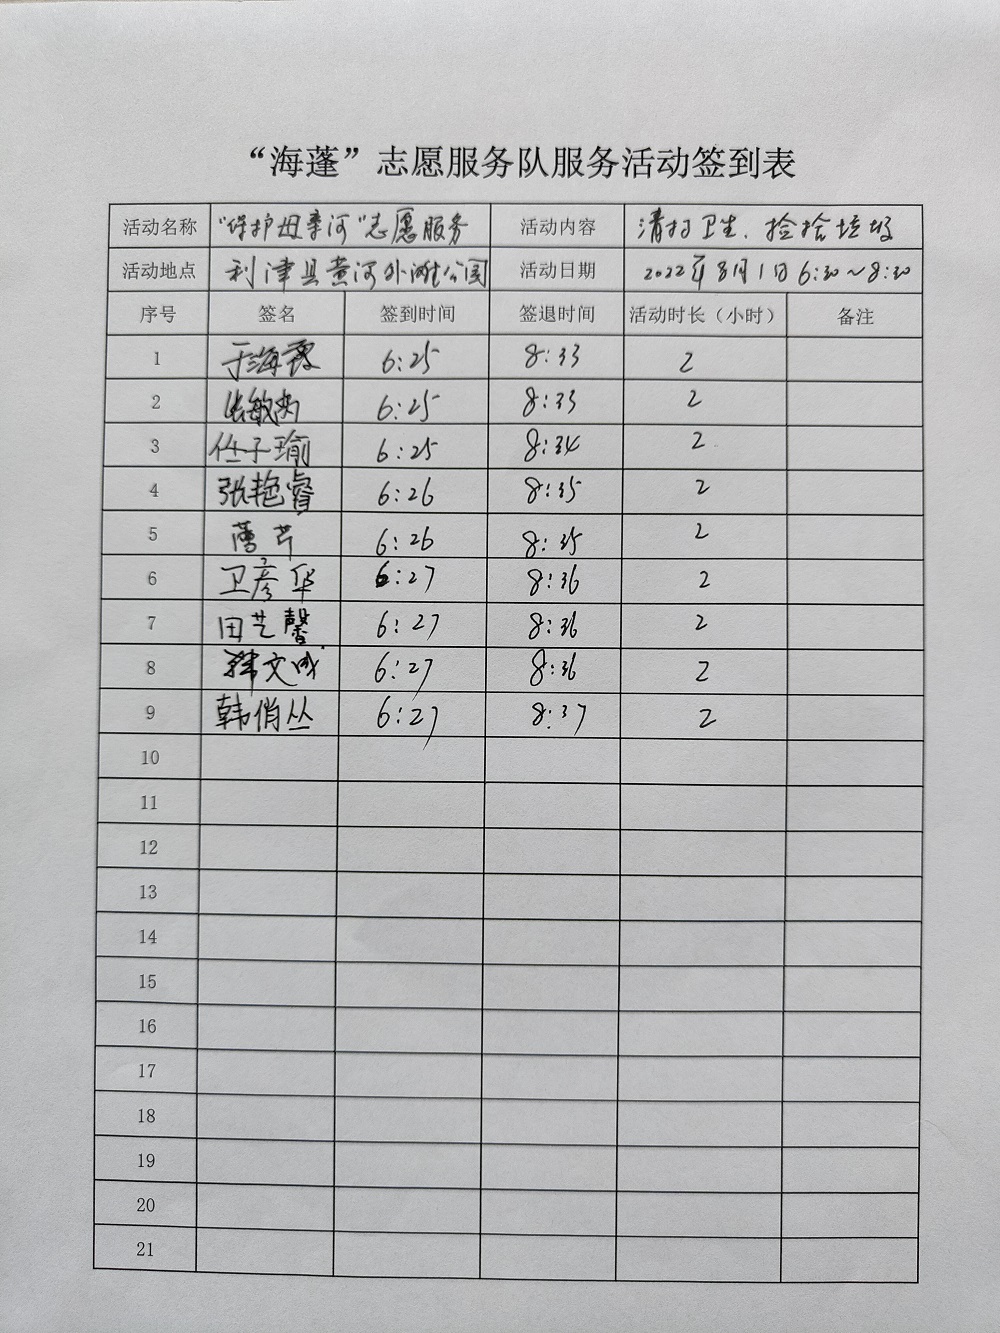 “海蓬”志愿服务队服务活动签到表
活动名称 “保护母亲河”志愿服务 活动内容 清扫卫生、捡拾垃圾
活动地点 利津县黄河外滩公园 活动日期 2022年8月1日 6:30～8:30
序号 签名 签到时间 签退时间 活动时长（小时） 备注
1 于海霞 6:25 8:33 2
2 张敏 6:25 8:33 2
3 任子瑜 6:25 8:34 2
4 张艳睿 6:26 8:35 2
5 芹 6:26 8:35 2
6 卫彦华 6:27 8:36 2
7 田艺馨 6:27 8:36 2
8 韩文成 6:27 8:36 2
9 韩俏丛 6:27 8:37 2
10
11
12
13
14
15
16
17
18
19
20
21